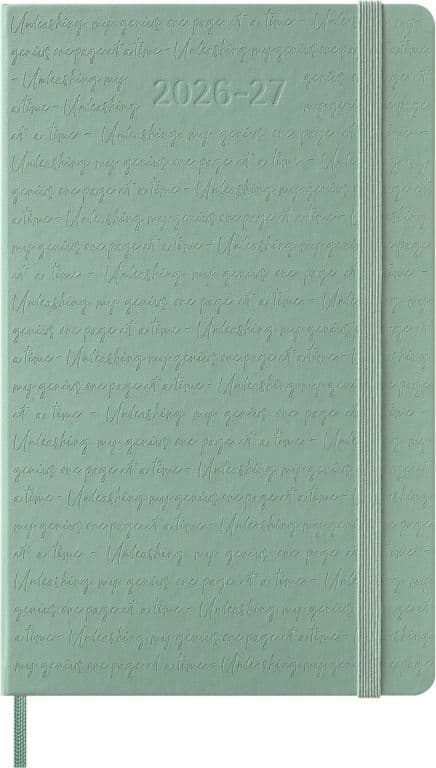 Unleashing my genius one page at a time - Unleashing my
genius one page at a time - Unleashing my genius one page at
- Unleashing my genius
2026-27
a time - Unleashing my genius
at a time - Unleashing my genius one page at a time -
Unleashing my genius one page at a time - Unleashing my
genius one page at a time - Unleashing my genius one page at
a time - Unleashing my genius one page at a time - Unleashing
my genius one page at a time - Unleashing my genius one page
at a time - Unleashing my genius one page at a time -
Unleashing my genius one page at a time - Unleashing my
genius one page at a time - Unleashing my genius one page at
a time - Unleashing my genius one page at a time - Unleashing
my genius one page at a time - Unleashing my genius one page
at a time - Unleashing my genius one page at a time -
Unleashing my genius one page at a time - Unleashing my
genius one page at a time - Unleashing my genius one page at
a time - Unleashing my genius one page at a time - Unleashing
my genius one page at a time - Unleashing my genius one page
at a time - Unleashing my genius one page at a time -
Unleashing my genius one page at a time - Unleashing my
genius one page at a time - Unleashing my genius one page at
a time - Unleashing my genius one page at a time - Unleashing
my genius one page at a time - Unleashing my genius one page